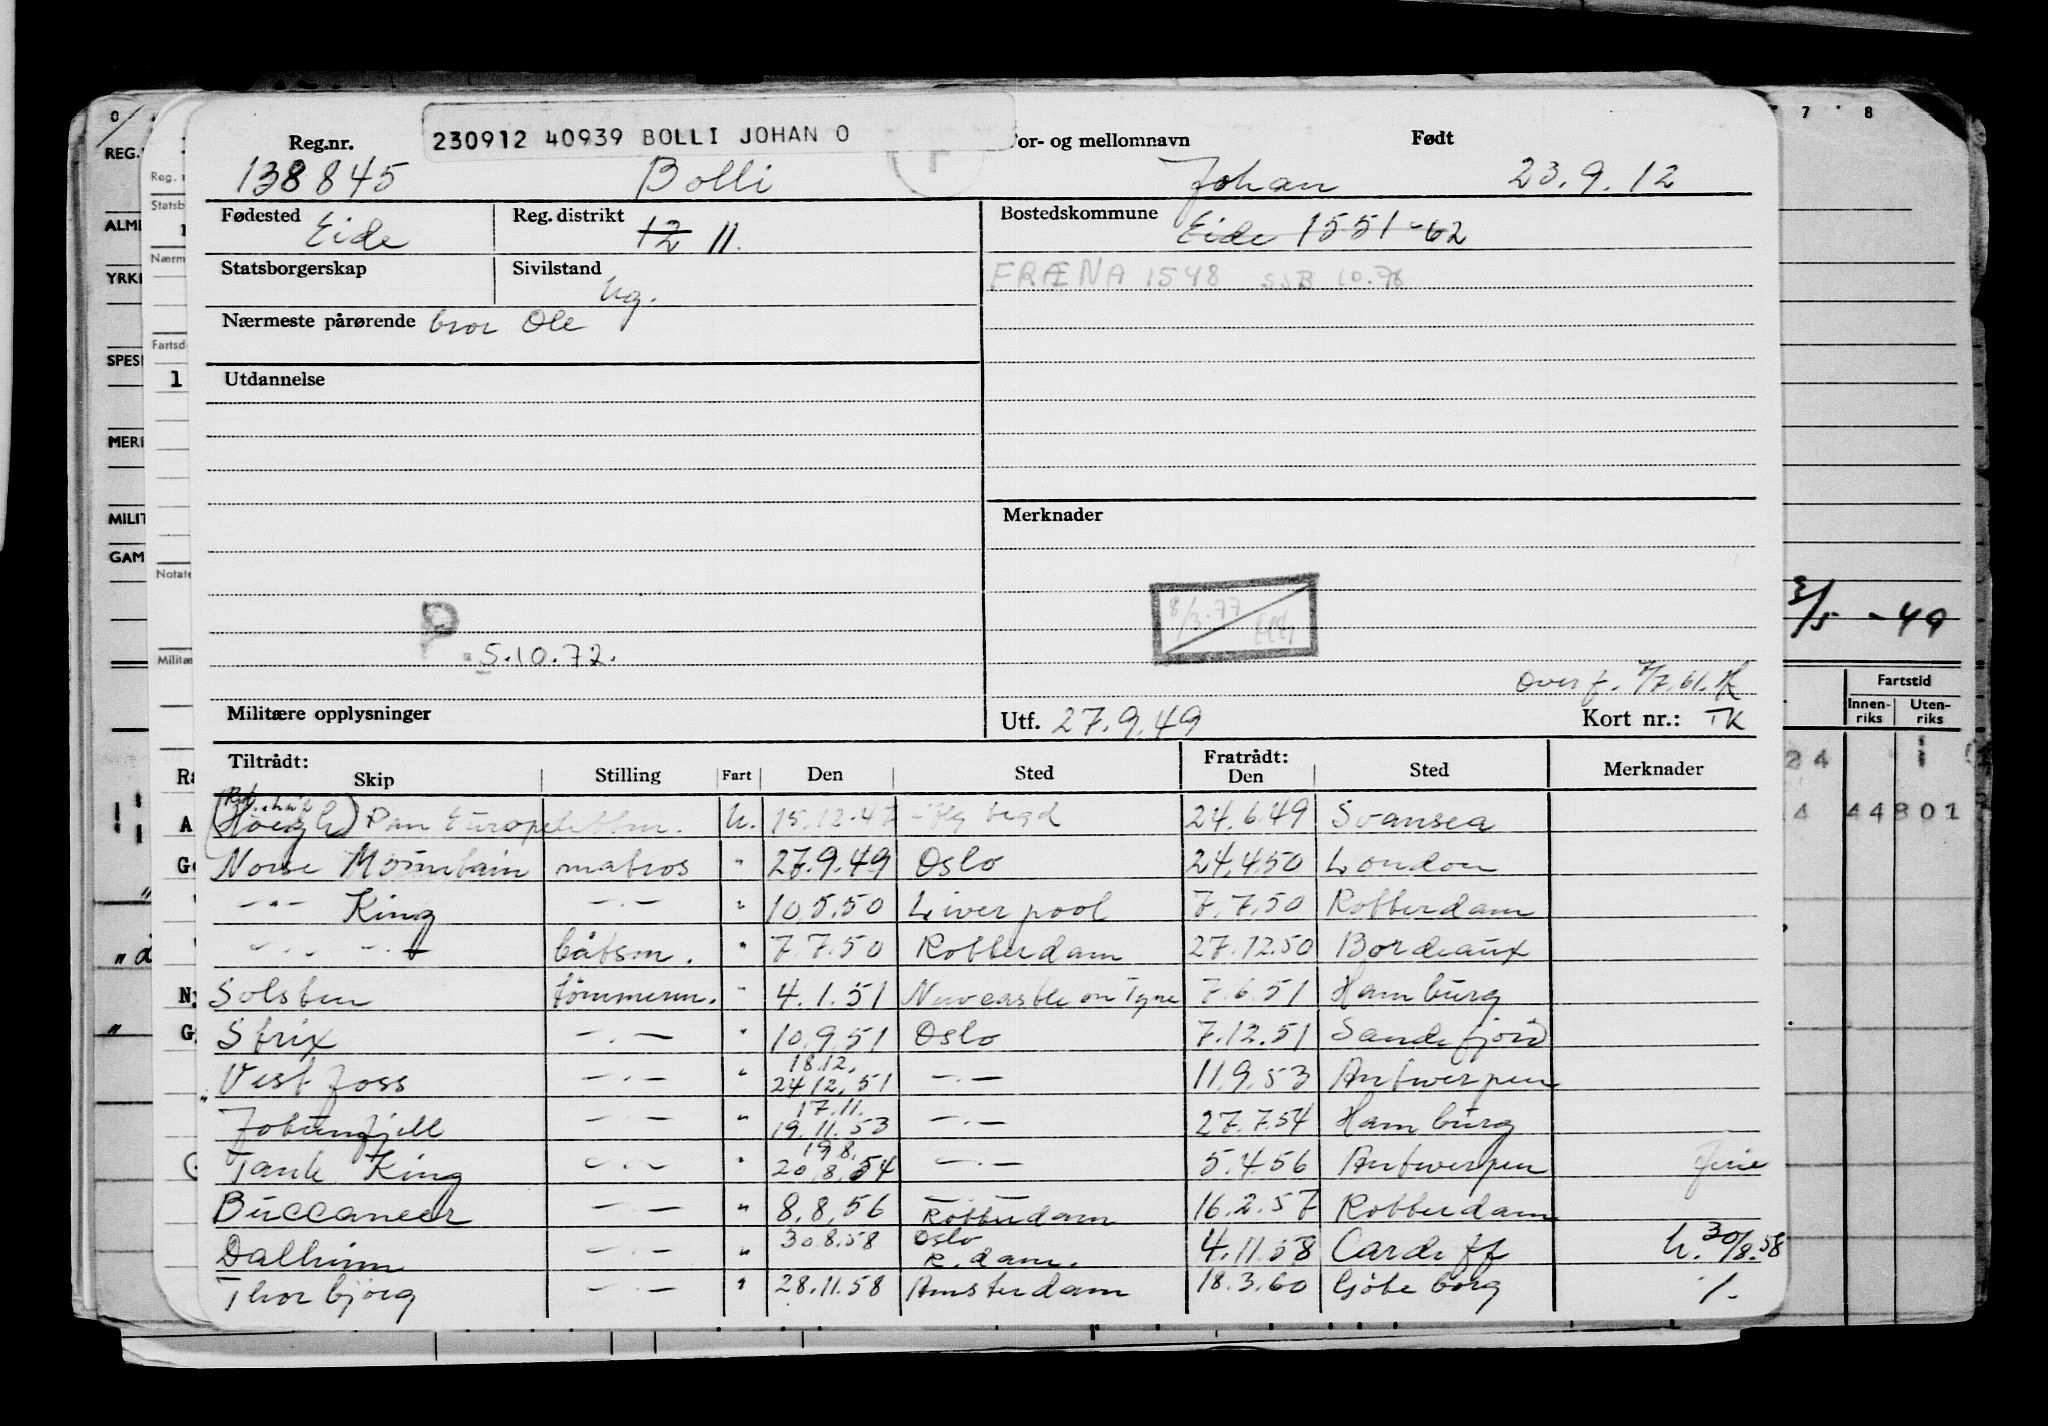 230912 40939 BOLLI JOHAN O
Reg.nr. For- og mellomnavn Født
138845 Bolli Johan 23.9.12
Fødested Eide Reg. distrikt 12 11. Bostedskommune Eide 1551-62
Statsborgerskap Sivilstand Ug. FRÆNA 1548 SSB 10.76
Nærmeste pårørende bror Ole
Utdannelse
Merknader
8/3.77
P. 5.10.72.
Overf. 7/7.61.
Militære opplysninger Utf. 27.9.49 Kort nr.: TK
Tiltrådt: Fratrådt:
Skip Stilling Fart Den Sted Den Sted Merknader
(Høegh) Pan Europe U. 15.12.47 24.6.49 Svansea
Norse Mountain matros " 27.9.49 Oslo 24.4.50 London
-"- King -"- " 10.5.50 Liverpool 7.7.50 Rotterdam
-"- -"- båtsm. " 7.7.50 Rotterdam 27.12.50 Bordeaux
Solsten tömmerm. " 4.1.51 Newcastle on Tyne 7.6.51 Hamburg
Strix -"- " 10.9.51 Oslo 7.12.51 Sandefjord
Vestfoss -"- " 18.12. 24.12.51 -"- 11.9.53 Antwerpen
Jotunfjell -"- " 17.11. 19.11.53 -"- 27.7.54 Hamburg
Tank King -"- " 19.8. 20.8.54 -"- 5.4.56 Antwerpen ferie
Buccaneer -"- " 8.8.56 Rotterdam 16.2.57 Rotterdam
Dalheim -"- " 30.8.58 Oslo R.dam. 4.11.58 Cardiff h. 30/8.58
Thorbjörg -"- " 28.11.58 Amsterdam 18.3.60 Göteborg
REG.
ALM
YRK
SPES
MER
MILIT
GAM
Reg.
Statsb
Nærm
Fartsd
1
Notate
Militæ
7 8
3/5 -49
Fartstid
Innen-riks Uten-riks
24 1
4 44801